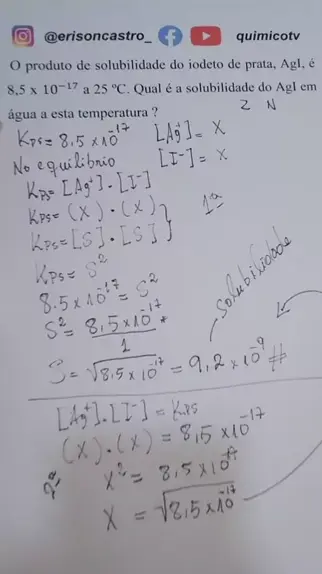 @erisoncastro_ quimicotv
O produto de solubilidade do iodeto de prata, AgI, é
8,5 x 10⁻¹⁷ a 25 ºC. Qual é a solubilidade do AgI em
água a esta temperatura ?
2 N
Kps = 8.5 x10⁻¹⁷ [Ag⁺] = X
No equilibrio [I⁻] = X
Kps = [Ag⁺] . [I⁻]
Kps = (X) . (X) } 1ª
Kps = [S] . [S]
Kps = S²
8.5 x10⁻¹⁷ = S²
S² = 8,5 x10⁻¹⁷
1
S = √8,5 x10⁻¹⁷ = 9,2 x10⁻⁹ #
solubilidade
[Ag⁺].[I⁻] = Kps
(X).(X) = 8,5 x10⁻¹⁷
2ª
X² = 8,5 x10⁻¹⁷
X = √8,5 x10⁻¹⁷